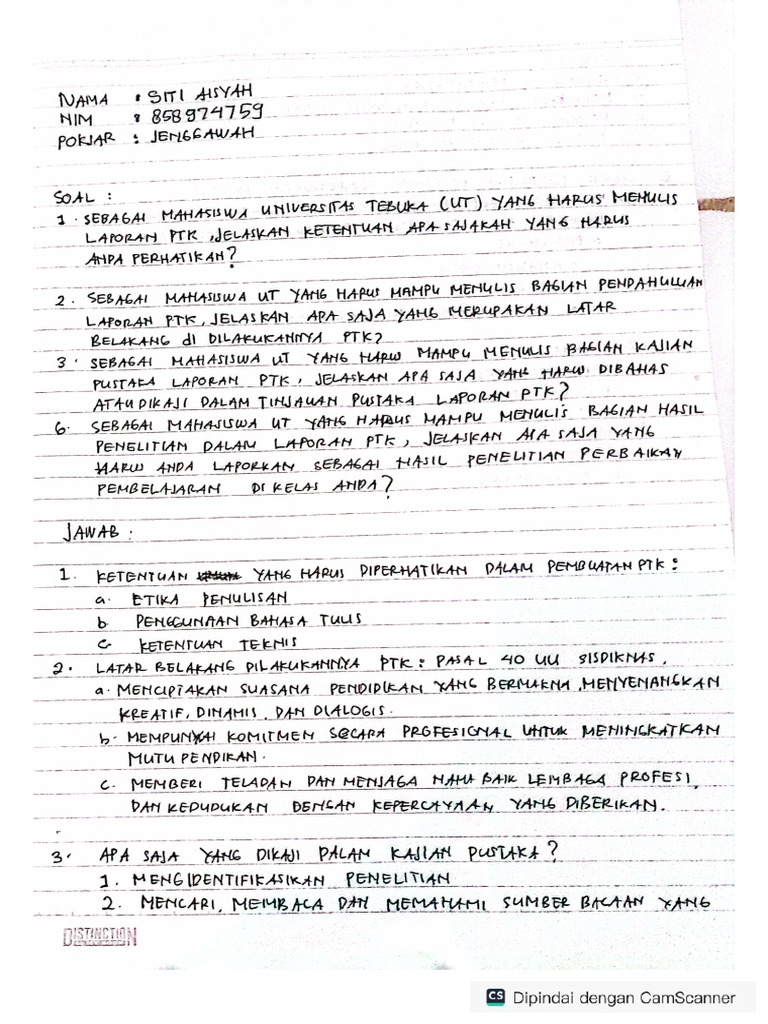 NAMA : SITI AISYAH
NIM : 858974759
POKJAR : JENGGAWAH
SOAL :
1. SEBAGAI MAHASISWA UNIVERSITAS TEBUKA (UT) YANG HARUS MENULIS
LAPORAN PTK, JELASKAN KETENTUAN APA SAJAKAH YANG HARUS
ANDA PERHATIKAN?
2. SEBAGAI MAHASISWA UT YANG HARUS MAMPU MENULIS BAGIAN PENDAHULUAN
LAPORAN PTK, JELASKAN APA SAJA YANG MERUPAKAN LATAR
BELAKANG di DILAKUKANNYA PTK?
3. SEBAGAI MAHASISWA UT YANG HARUS MAMPU MENULIS BAGIAN KAJIAN
PUSTAKA LAPORAN PTK, JELASKAN APA SAJA YANG HARUS DIBAHAS
ATAU DIKAJI DALAM TINJAUAN PUSTAKA LAPORAN PTK?
6. SEBAGAI MAHASISWA UT YANG HARUS MAMPU MENULIS BAGIAN HASIL
PENELITIAN DALAM LAPORAN PTK, JELASKAN APA SAJA YANG
HARUS ANDA LAPORKAN SEBAGAI HASIL PENELITIAN PERBAIKAN
PEMBELAJARAN DI KELAS ANDA?
JAWAB :
1. KETENTUAN YANG HARUS DIPERHATIKAN DALAM PEMBUATAN PTK :
a. ETIKA PENULISAN
b. PENGGUNAAN BAHASA TULIS
c. KETENTUAN TEKNIS
2. LATAR BELAKANG DILAKUKANNYA PTK : PASAL 40 UU SISDIKNAS,
a. MENCIPTAKAN SUASANA PENDIDIKAN YANG BERMAKNA, MENYENANGKAN
KREATIF, DINAMIS, DAN DIALOGIS.
b. MEMPUNYAI KOMITMEN SECARA PROFESIONAL UNTUK MENINGKATKAN
MUTU PENDIKAN.
c. MEMBERI TELADAN DAN MENJAGA NAMA BAIK LEMBAGA PROFESI,
DAN KEDUDUKAN DENGAN KEPERCAYAAN YANG DIBERIKAN.
3. APA SAJA YANG DIKAJI DALAM KAJIAN PUSTAKA?
1. MENGIDENTIFIKASIKAN PENELITIAN
2. MENCARI, MEMBACA DAN MEMAHAMI SUMBER BACAAN YANG
DISTINCTION
CS Dipindai dengan CamScanner